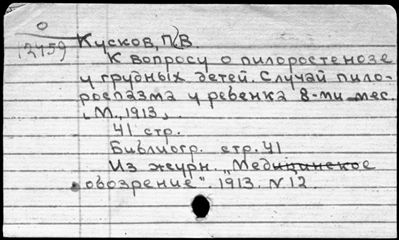 0
13759
Кусков, П.В.
К вопросу о пилоростенозе
у грудных детей. Случай пило-
роспазма у ребенка 8-ми мес.
[М., 1913].
41 стр.
Библиогр. стр. 41
Из журн. "Медицинское
обозрение". 1913. N 12.